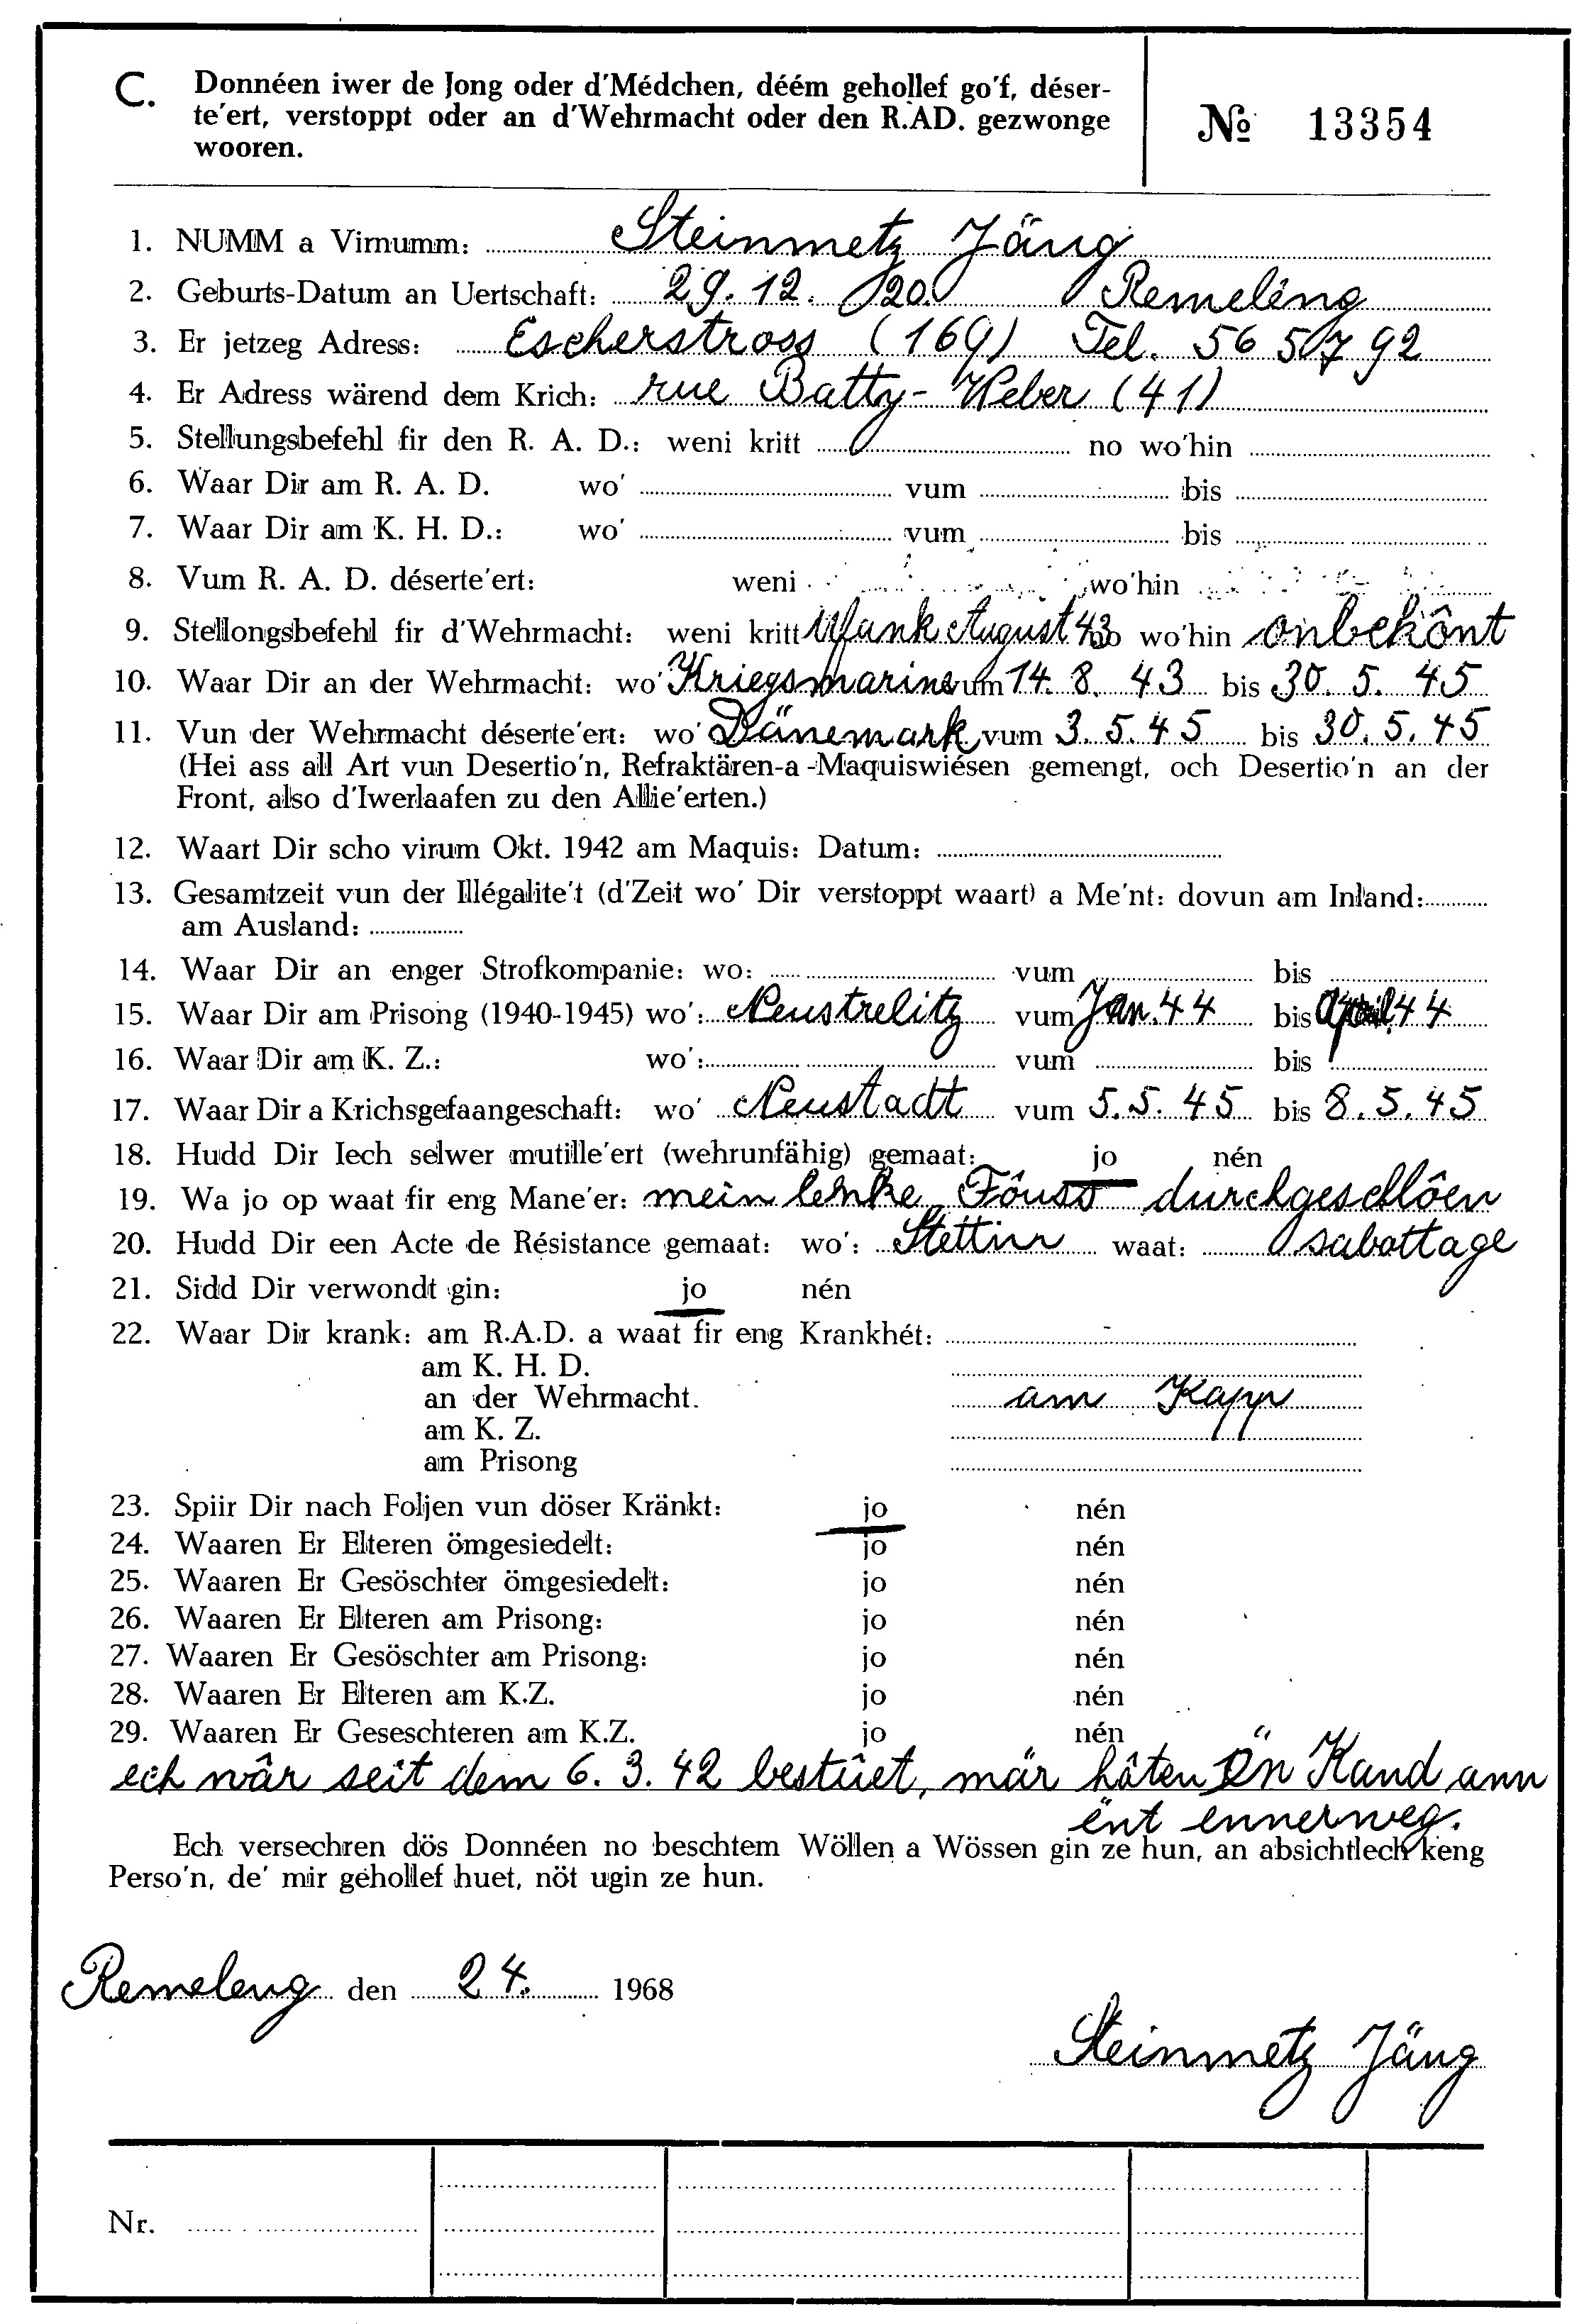 C. Donnéen iwer de Jong oder d'Médchen, déém gehollef go'f, déser-
te'ert, verstoppt oder an d'Wehrmacht oder den R.AD. gezwonge
wooren.
№ 13354
1. NUMM a Virnumm: Steinmetz Jäng
2. Geburts-Datum an Uertschaft: 29. 12. 20. Remeléng
3. Er jetzeg Adress: Escherstross (169) Tel. 56 57 92
4. Er Adress wärend dem Krich: rue Batty-Weber (41)
5. Stellungsbefehl fir den R. A. D.: weni kritt no wo'hin
6. Waar Dir am R. A. D. wo' vum bis
7. Waar Dir am K. H. D.: wo' vum bis
8. Vum R. A. D. déserte'ert: weni wo'hin
9. Stellongsbefehl fir d'Wehrmacht: weni kritt Ufank August 43 no wo'hin onbekônt
10. Waar Dir an der Wehrmacht: wo' Kriegsmarine vum 14. 8. 43 bis 30. 5. 45
11. Vun der Wehrmacht déserte'ert: wo' Dänemark vum 3. 5. 45 bis 30. 5. 45
(Hei ass all Art vun Desertio'n, Refraktären-a-Maquiswiésen gemengt, och Desertio'n an der
Front, also d'Iwerlaafen zu den Allie'erten.)
12. Waart Dir scho virum Okt. 1942 am Maquis: Datum:
13. Gesamtzeit vun der Illégalite't (d'Zeit wo' Dir verstoppt waart) a Me'nt: dovun am Inland:
am Ausland:
14. Waar Dir an enger Strofkompanie: wo: vum bis
15. Waar Dir am Prisong (1940-1945) wo': Neustrelitz vum Jan. 44 bis April 44
16. Waar Dir am K. Z.: wo': vum bis
17. Waar Dir a Krichsgefaangeschaft: wo' Neustadt vum 5. 5. 45 bis 8. 5. 45
18. Hudd Dir Iech selwer mutille'ert (wehrunfähig) gemaat: jo nén
19. Wa jo op waat fir eng Mane'er: mein lenke Fôuss durchgeschlôen
20. Hudd Dir een Acte de Résistance gemaat: wo': Stettin waat: sabottage
21. Sidd Dir verwondt gin: jo nén
22. Waar Dir krank: am R.A.D. a waat fir eng Krankhét:
am K. H. D.
an der Wehrmacht. am Kapp
am K. Z.
am Prisong
23. Spiir Dir nach Foljen vun döser Kränkt: jo nén
24. Waaren Er Elteren ömgesiedelt: jo nén
25. Waaren Er Gesöschter ömgesiedelt: jo nén
26. Waaren Er Elteren am Prisong: jo nén
27. Waaren Er Gesöschter am Prisong: jo nén
28. Waaren Er Elteren am K.Z. jo nén
29. Waaren Er Geseschteren am K.Z. jo nén
ech wâr seit dem 6. 3. 42 bestûet, mär hâten ën Kand ann
ënt ennerweg.
Ech versechren dös Donnéen no beschtem Wöllen a Wössen gin ze hun, an absichtlech keng
Perso'n, de' mir gehollef huet, nöt ugin ze hun.
Remeleng den 24. 1968
Steinmetz Jäng
Nr.